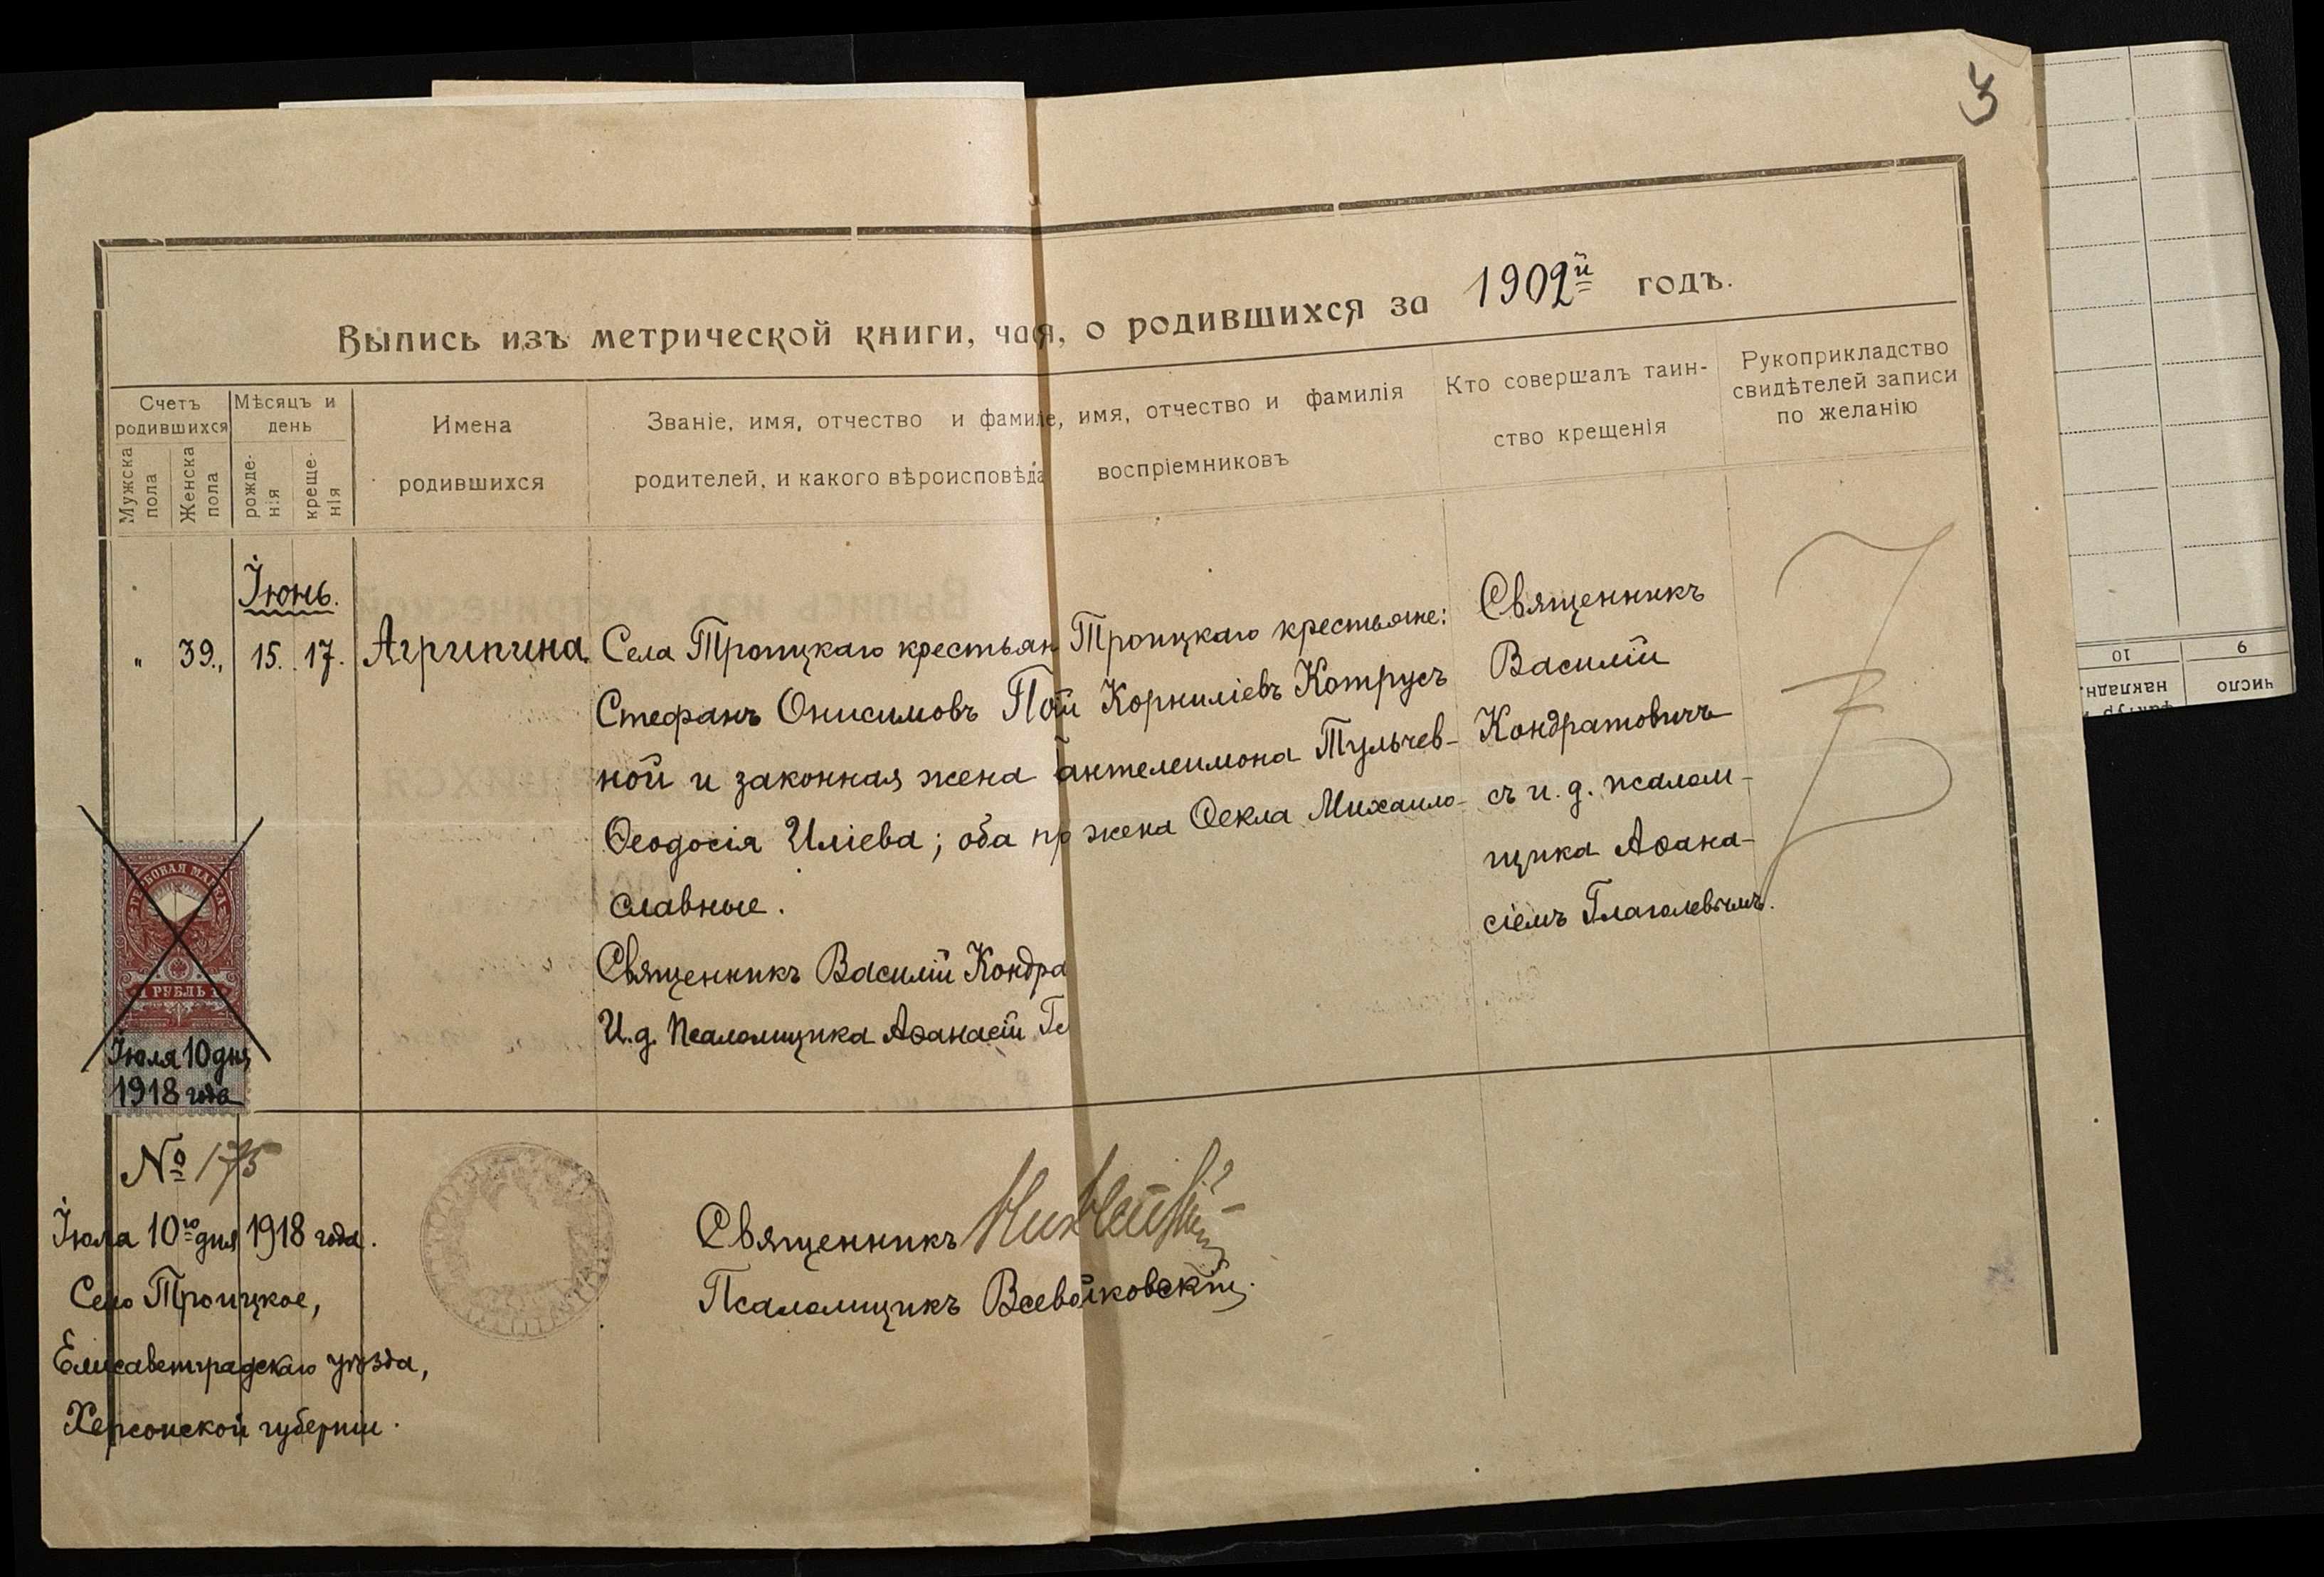 З
Выпись изъ метрической книги, ча я, о родившихся за 1902й годъ.
Счетъ родившихся
Мужска пола
Женска пола
Мѣсяцъ и день
рожде-нія
креще-нія
Имена
родившихся
Званіе, имя, отчество и фамил
родителей, и какого вѣроисповѣда
е, имя, отчество и фамилія
воспріемниковъ
Кто совершалъ таин-
ство крещенія
Рукоприкладство
свидѣтелей записи
по желанію
Іюнь.
" 39., 15. 17. Агрипина
Села Троицкаго крестьян
Стефанъ Онисимовъ
ной и законная жена
Ѳеодосія Иліева; оба пр
славные.
Священникъ Василій Кондра
И.д. Псаломщика Аѳанасій Гл
Троицкаго крестьяне:
Корниліевъ Котрусъ
антелеимона Тульчев-
жена Ѳекла Михаило-
Священникъ
Василій
Кондратовичъ
съ и. д. псалом-
щика Аѳана-
сіемъ Глаголевымъ.
ГЕРБОВАЯ МАРКА
1 РУБЛЬ 1
Іюля 10 дня
1918 года
№ 175
Іюля 10го дня 1918 года.
Село Троицкое,
Елисаветградскаго уѣзда,
Херсонской губерніи.
Священникъ
Псаломщикъ
число
накладн.
9
10